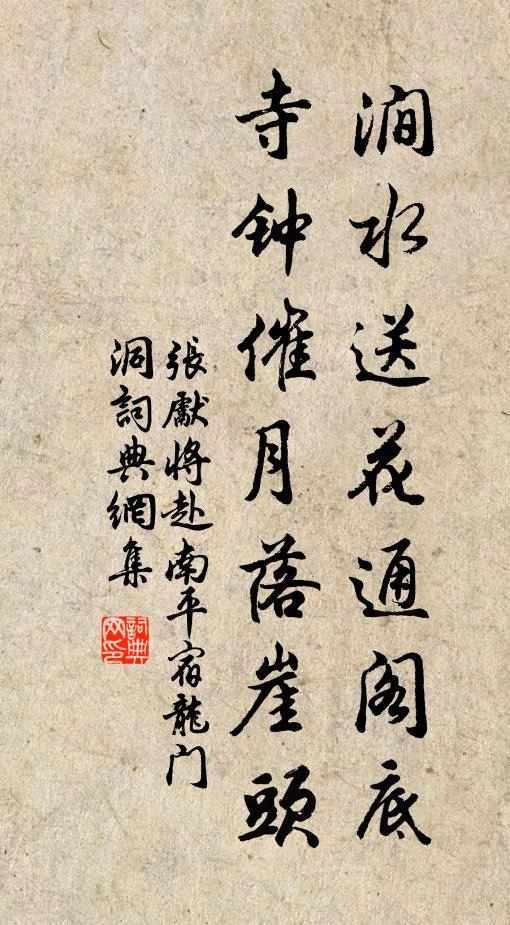 澗水送花通阁底
寺钟催月落崖頭
張獻將赴南平宿龍门
洞詞典網集
詞典
网印